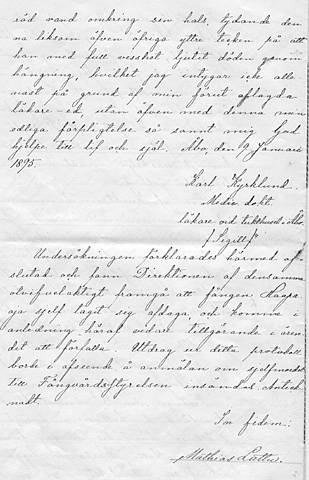 råd vand omkring sin hals, tydande den
na liksom äfven öfriga yttre tecken på att
han med full visshet ljutit döden genom
hängning, hvilket jag intygar icke alle
nast på grund af min förut aflagda
läkare ed, utan äfven med denna min
edliga förpligtelse så sannt mig Gud
hjelpe till lif och själ. Åbo, den 9 Januari
1895.
Karl Kyrklund.
Medic. dokt.
läkare vid tukthuset i Åbo,
/Sigill/
Undersökningen förklarades härmed af-
slutad och fann Direktionen af densamma
otvifvelaktigt framgå att fången Haapa
oja sjelf tagit sig afdaga, och komme i
anledning häraf vidare tillgörande i ären
det att förfalla. Utdrag ur detta protokoll
borde i afseende å anmälan om sjelfmordet
till Fångvårdsstyrelsen insändas. Anteck
nadt.
In fidem:
Mathias